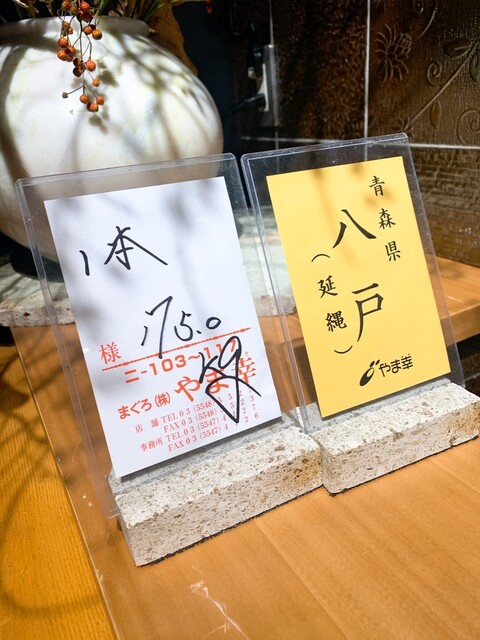 1本
175.0
様
ニ-103~11
まぐろ(株)やま幸
店舗 TEL03(5548)
FAX03(5548)
事務所 TEL03(5547)
FAX03(5547)
青森県
八戸
(延縄)
やま幸